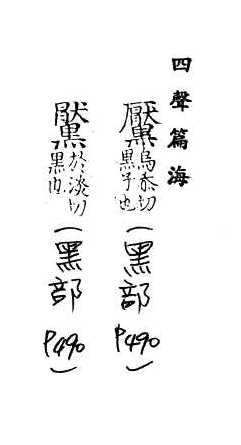 四聲篇海
黶烏忝切黑子也(黑部 P490)
於淡切黑(黑部 P490)